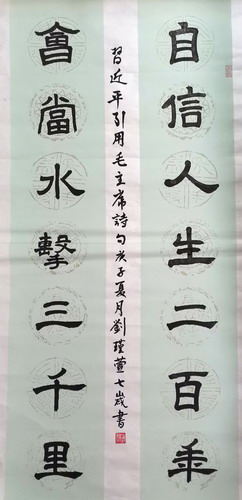 自信人生二百年
會當水擊三千里
習近平引用毛主席詩句庚子夏月劉瑾萱七歲書